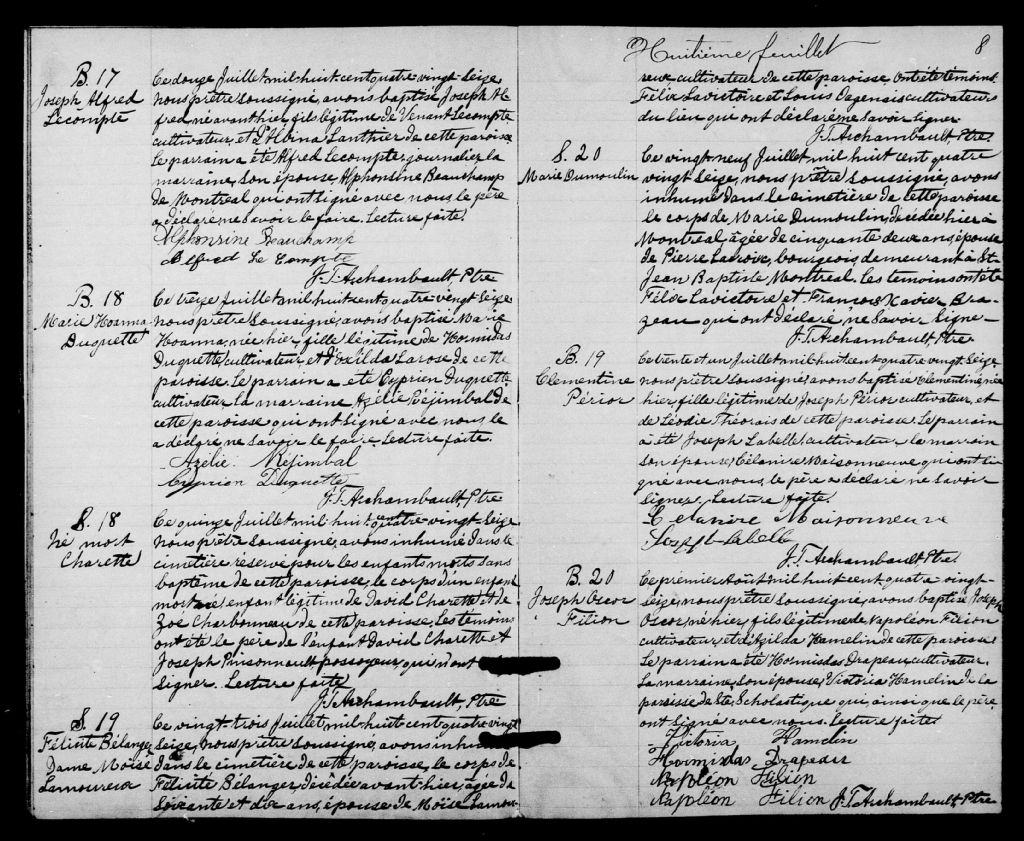 B. 17
Joseph Alfred
Lecompte
Ce douze Juillet mil huit cent quatre-vingt-seize,
nous prêtre soussigné, avons baptisé Joseph Al-
fred né avant hier, fils légitime de Venant Lecompte
cultivateur, et d'Albina Lanthier de cette paroisse.
Le parrain a été Alfred Lecompte, journalier, la
marraine, son épouse, Alphonsine Beauchamp
de Montreal qui ont signé avec nous le père
a déclaré ne savoir le faire. Lecture faite.
Alphonsine Beauchamp
Alfred Le Compte
J.T. Archambault, Ptre
B. 18
Marie Hoanna
Duquette
Ce treize Juillet mil huit cent quatre-vingt-seize
nous prêtre soussigné, avons baptisé Marie
Hoanna, née hier, fille légitime de Hormidas
Duquette, cultivateur, et d'Exilda Larose, de cette
paroisse. Le parrain a été Cyprien Duquette
cultivateur la marraine Azélie Réjimbal de
cette paroisse qui ont signé avec nous, le
a déclaré ne savoir le faire. Lecture faite.
Azélie Réjimbal
Cyprien Duquette
J.T. Archambault, Ptre
S. 18
Né mort
Charette
Ce quinze Juillet mil huit cent quatre-vingt-seize
nous prêtre soussigné, avons inhumé dans le
cimetière réservé pour les enfants morts sans
baptême de cette paroisse, le corps d'un enfant
mort né, enfant légitime de David Charette et de
Zoé Charbonneau de cette paroisse. Les témoins
ont été le père de l'enfant David Charette et
Joseph Prisonnault fossoyeur, qui n'ont
signer. Lecture faite
J.T. Archambault, Ptre
S. 19
Félicité Bélanger
Dame Moïse
Lamoureux
Ce vingt-trois Juillet, mil huit cent quatre vingt
seize, nous prêtre soussigné, avons inhumé
dans le cimetière de cette paroisse, le corps de
Félicité Bélanger, décédée avant-hier, agée de
soixante et dix ans, épouse de Moïse Lamou-
Huitième feuillet
8
reux cultivateur de cette paroisse. Ont été témoins
Félix Lavictoire et Louis Dagenais cultivateurs
du lieu qui ont déclaré ne savoir signer
J.T. Archambault, Ptre
S. 20
Marie Dumoulin
Ce vingt-neuf Juillet, mil huit cent quatre
vingt seize, nous prêtre soussigné, avons
inhumé dans le cimetière de cette paroisse
le corps de Marie Dumoulin, décédée hier à
Montreal, âgée de cinquante deux ans, épouse
de Pierre Lacroix, bourgeois demeurant à St-
Jean Baptiste Montreal. Les temoins ont été
Félix Lavictoire et François Xavier Bra-
zeau qui ont déclaré, ne savoir signer
J.T. Archambault, Ptre
B. 19
Clementine
Périor
Ce trente et un Juillet mil huit cent quatre vingt seize
nous prêtre soussigné, avons baptisé Clementine, née
hier, fille légitime de Joseph Périor cultivateur, et
de Léodie Théorais de cette paroisse. Le parrain
a été Joseph Labelle cultivateur la marraine
son épouse, Célanire Maisonneuve qui ont si-
gné avec nous, le père a déclaré ne savoir
signer. Lecture faite.
Celanire Maisonneuve
Joseph Labelle
J.T. Archambault Ptre.
B. 20
Joseph Oscor
Filion
Ce premier Août mil huit cent quatre vingt-
seize, nous prêtre soussigné, avons baptisé Joseph
Oscor, né hier, fils légitime de Napoléon Filion
cultivateur, et d'Azilda Hamelin de cette paroisse
Le parrain a été Hormisdas Drapeau cultivateur.
La marraine, son épouse, Victoria Hamelin de la
paroisse de Ste, Scholastique qui, ainsi que le père
ont signé avec nous. Lecture faite.
Victoria Hamelin
Hormisdas Drapeau
Napoléon Filion
Napoléon Filion J.T. Archambault, Ptre